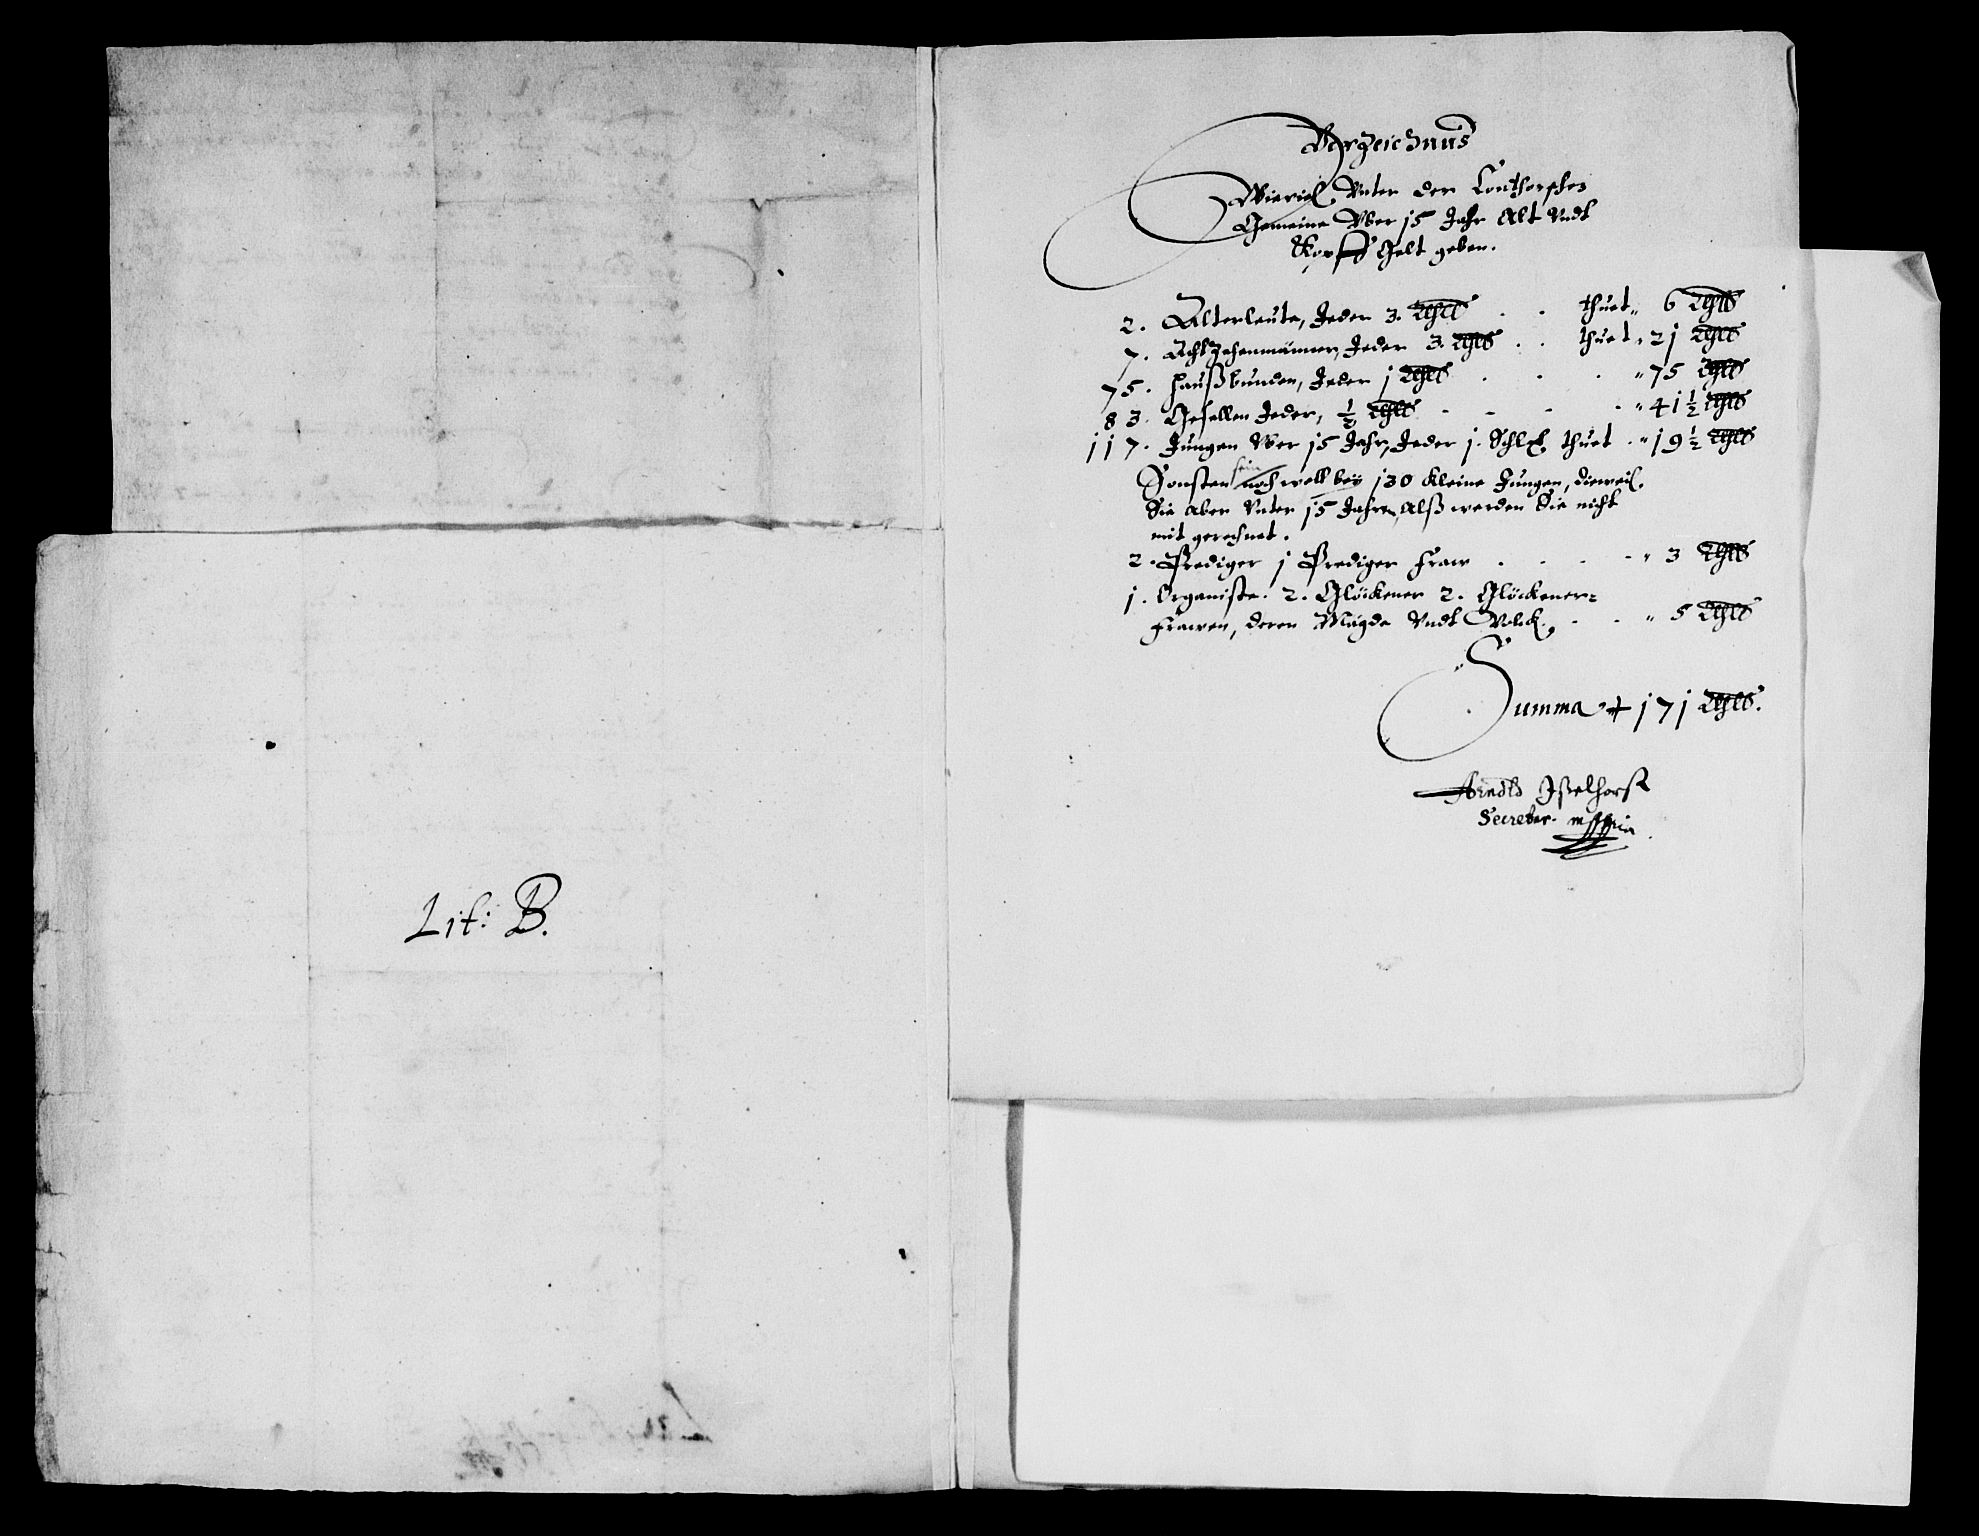 Lit: B.
Verzeichnus
Wieviel Vnter der Conthorschen
Gemeine Vber 15 Jahr Alt Vndt
Kopff Gelt geben.
2. Alterleute, Jeder 3. Rthlr . . thuet „ 6 Rthlr
7. Achtzehenmänner, Jeder 3. Rthlr . . thuet „ 21 Rthlr
75. Haußbunden, Jeder 1 Rthlr . . . „ 75 Rthlr
83. Gesellen Jeder, ½ Rthlr . . . . „ 41 ½ Rthlr
117. Jungen Vber 15 Jahr, Jeder 1. Schl thuet . „ 19 ½ Rthlr
Sonsten sein noch woll bey 130 kleine Jungen, dieweil
Sie aber Vnter 15 Jahren, Alß werden Sie nicht
mit gerechnet.
2. Prediger 1 Prediger Fraw . . . . „ 3 Rthlr
1. Organiste. 2. Glöckener 2. Glöckener=
Frawen, deren Mägde Vndt Volck, . . „ 5 Rthlr
Summa 171 Rthlr.
Arendtt Ißelhorst
Secreter. mppria